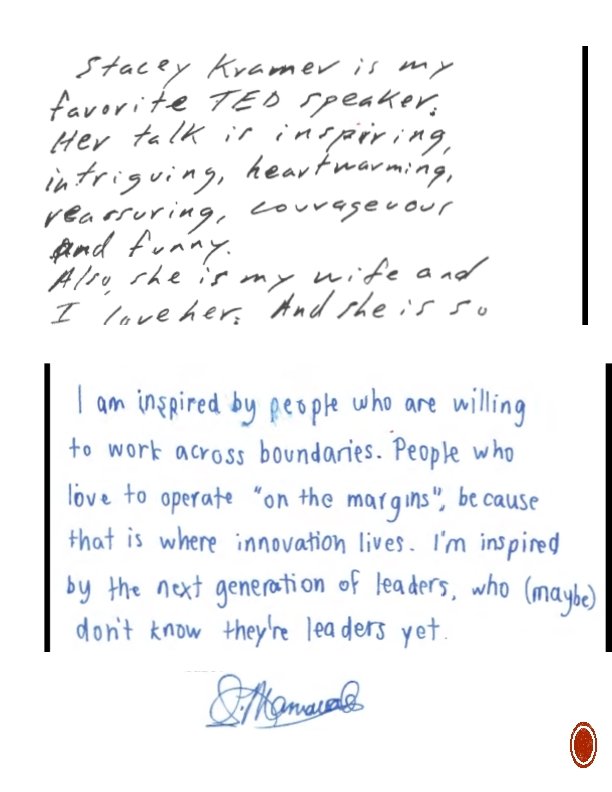 Stacey Kramer is my
favorite TED speaker.
Her talk is inspiring,
intriguing, heartwarming,
reassuring, courageuous
and funny.
Also, she is my wife and
I love her. And she is so
I am inspired by people who are willing
to work across boundaries. People who
love to operate "on the margins", because
that is where innovation lives. I'm inspired
by the next generation of leaders, who (maybe)
don't know they're leaders yet.